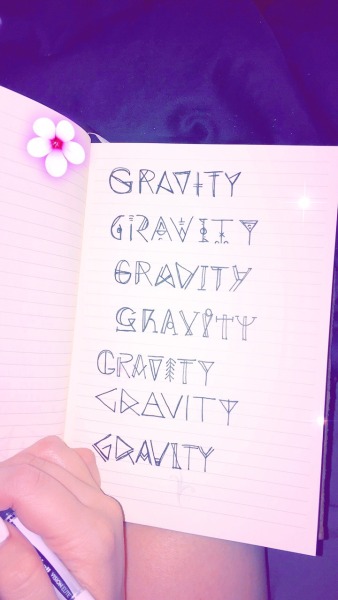 GRAVITY
GRAVITY
GRAVITY
GRAVITY
GRAVITY
GRAVITY
GRAVITY
VISION ELITE